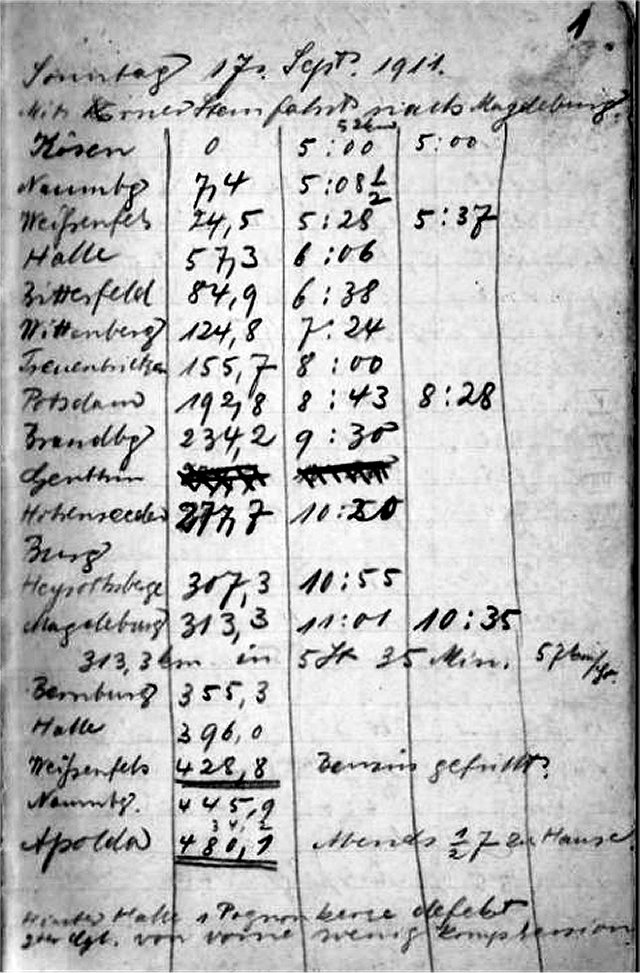 1.
Sonntag 17. Sept. 1911.
Mit Körner Sternfahrt nach Magdeburg.
52 km
Kösen 0 5:00 5:00
Naumbg 7,4 5:08½
Weißenfels 24,5 5:28 5:37
Halle 57,3 6:06
Bitterfeld 84,9 6:38
Wittenberg 124,8 7:24
Treuenbrietzen 155,7 8:00
Potsdam 192,8 8:43 8:28
Brandbg 234,2 9:30
Genthin
Hohenseeden 277,7 10:20
Burg
Heyrothsberge 307,3 10:55
Magdeburg 313,3 11:01 10:35
313,3 km in 5 St 35 Min. 57 km/St.
Bernburg 355,3
Halle 396,0
Weißenfels 428,8 Benzin gefüllt.
Naumbg. 445,9
34,2
Apolda 480,1 Abends ½7 zu Hause.
Hinter Halle 1 Pognonkerze defekt
2ter Cyl. von vorne wenig Kompression